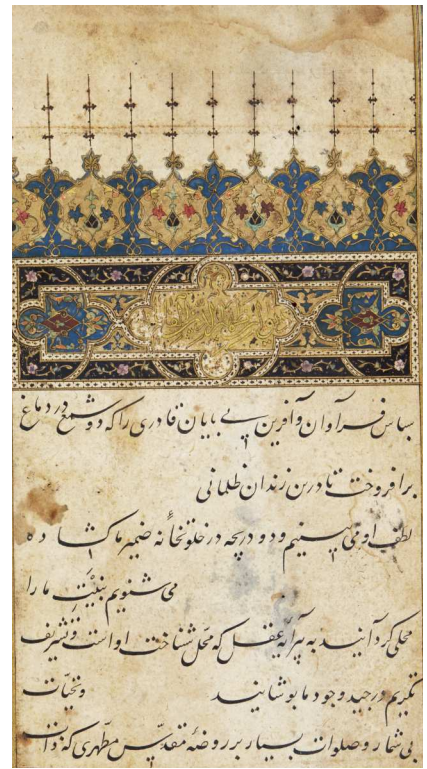 سپاس فراوان و آفرین بی پایان قادری را که دو شمع در دماغ
برافروخت تا درین زندان ظلمانی
لطف او می بینیم و دو دریچه در خلوتخانه ضمیر ما کشاده
می شنویم بنیت ما را
محلی گردانید به پیرایه عقل که محل شناخت او است و تشریف
تکریم در جید وجود ما پوشانید و تحیات
بی شمار و صلوات بسیار بر روضه مقدس مطهری که ذات